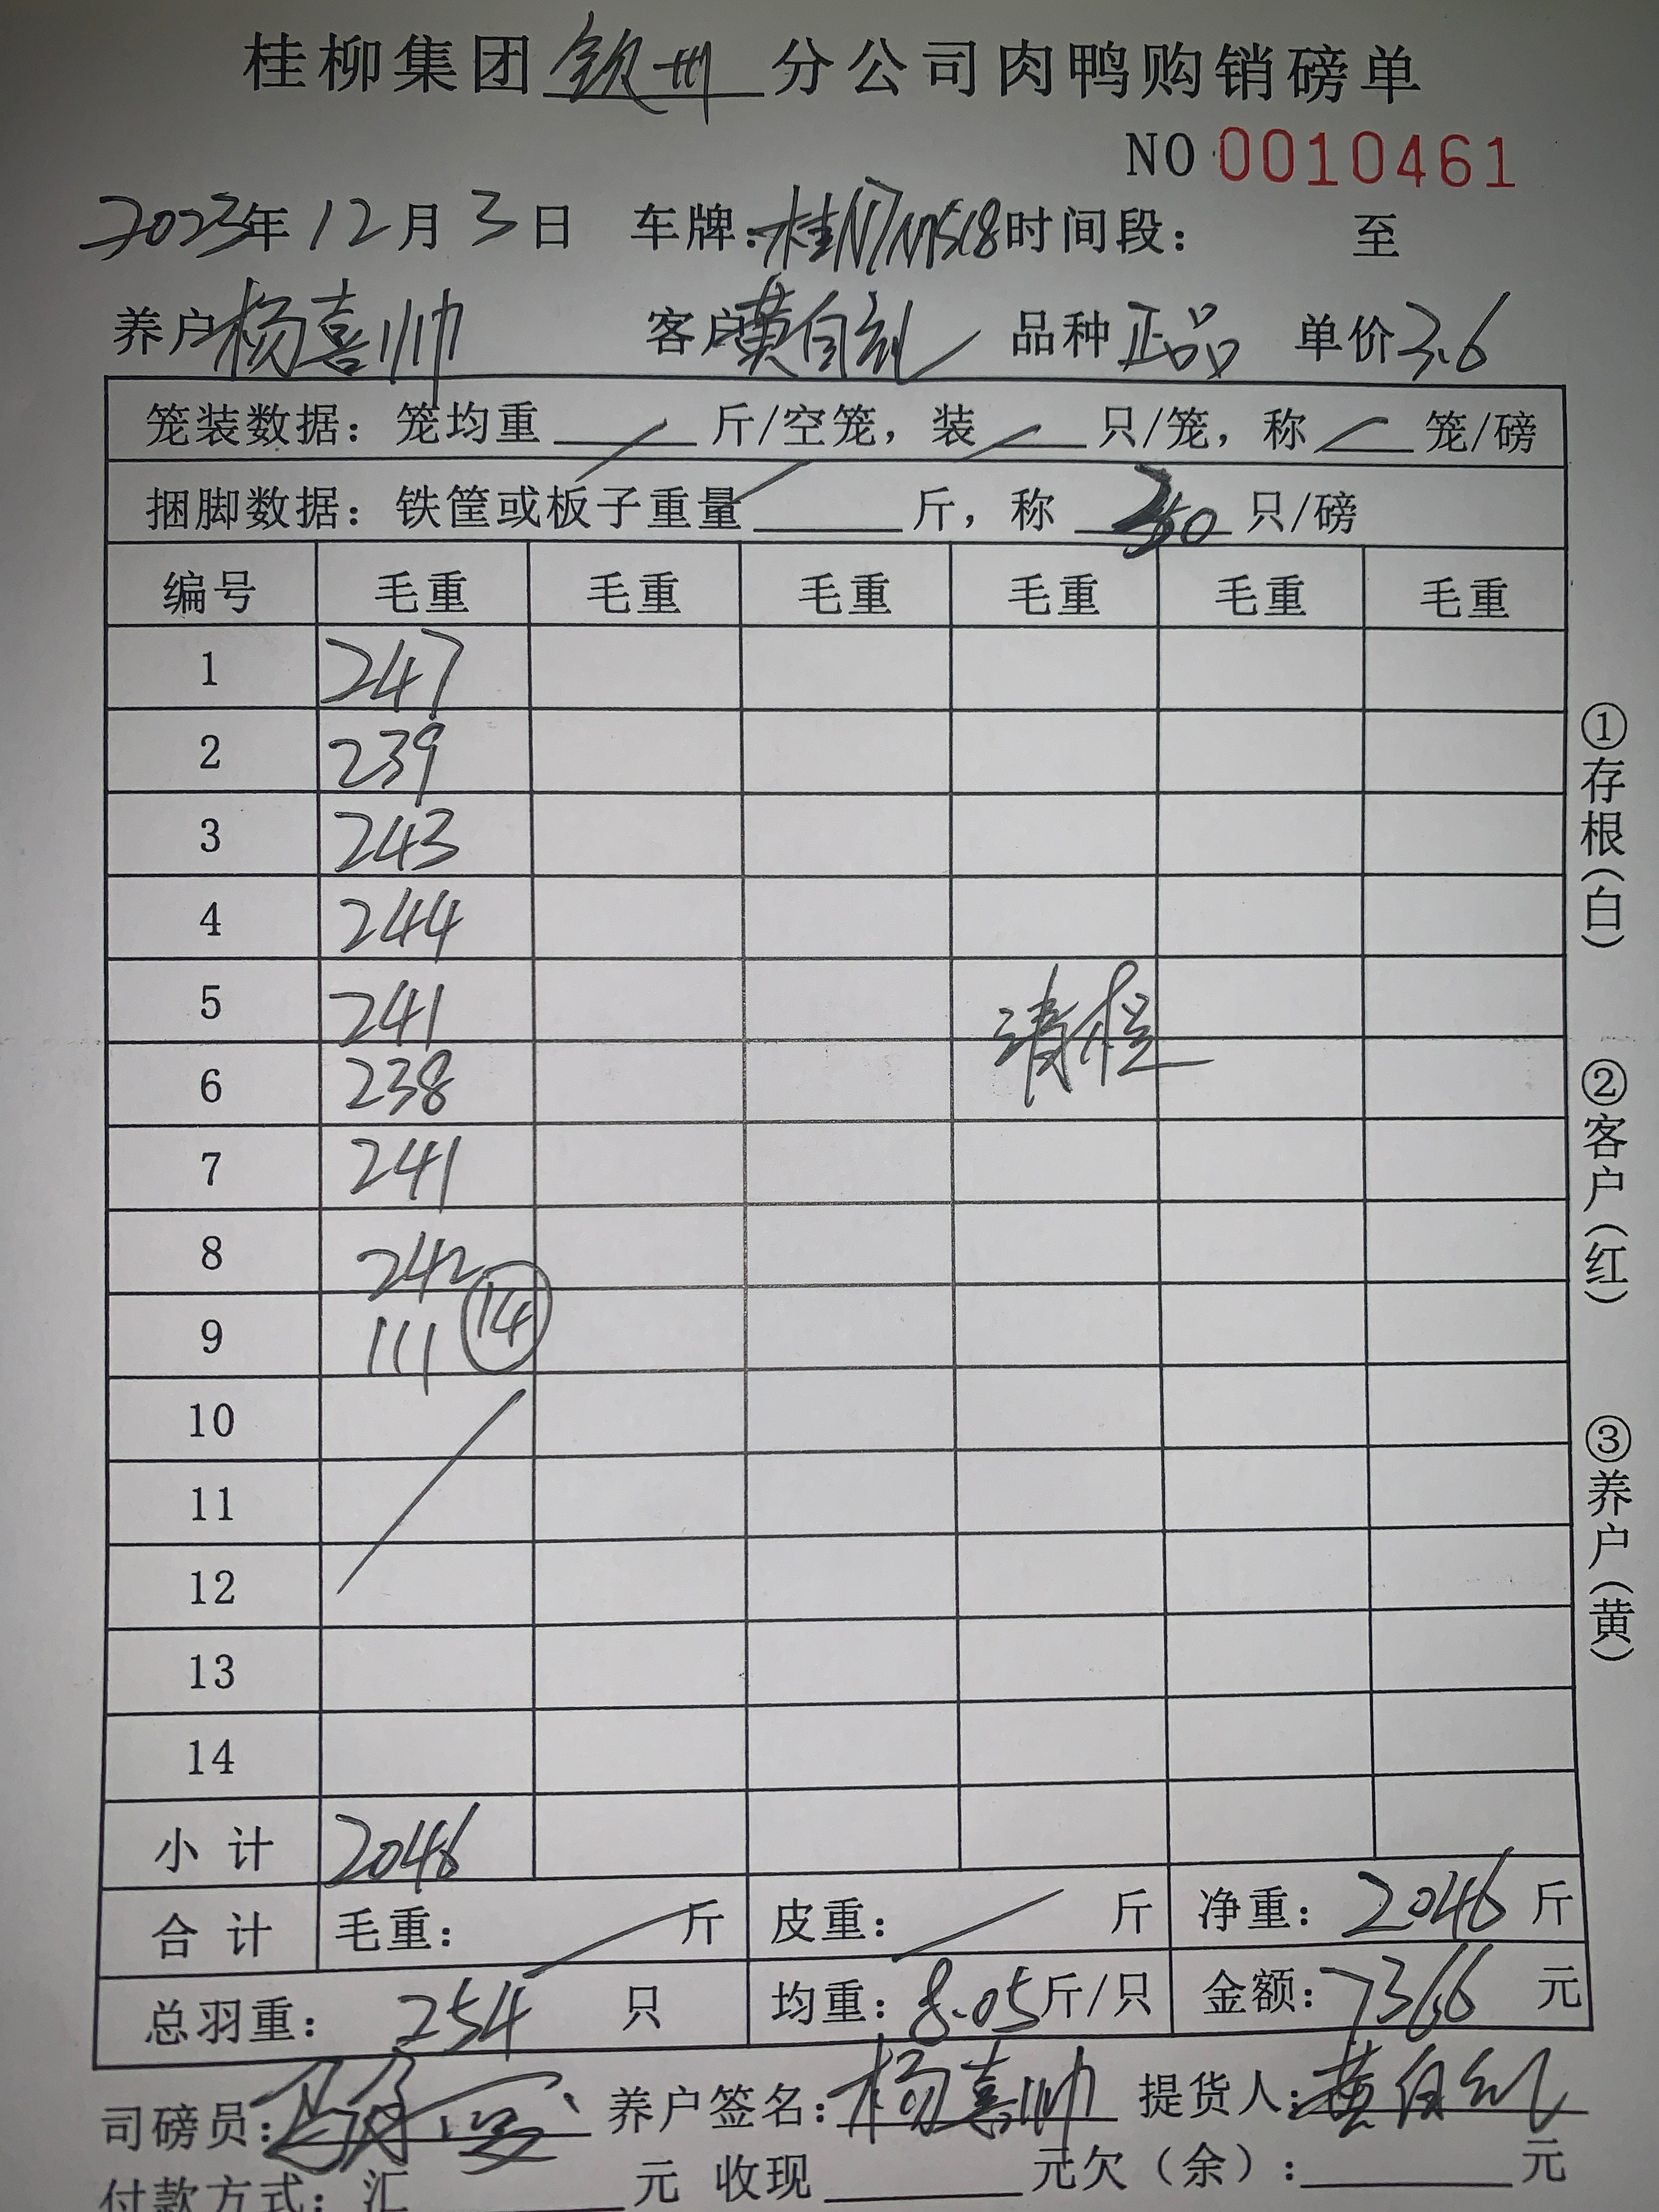 桂柳集团钦州分公司肉鸭购销磅单
NO 0010461
2023年12月3日 车牌: 时间段: 至
养户杨喜帅 客户黄自红 品种正品 单价3.6
笼装数据: 笼均重 / 斤/空笼, 装 / 只/笼, 称 / 笼/磅
捆脚数据: 铁筐或板子重量 / 斤, 称 30 只/磅
编号 毛重 毛重 毛重 毛重 毛重 毛重
1 247
2 239
3 243
4 244
5 241
6 238
7 241
8 242
9 111 ⑭
10
11
12
13
14
小计 2046
合计 毛重: / 斤 皮重: / 斤 净重: 2046 斤
总羽重: 254 只 均重: 8.05斤/只 金额: 7366 元
司磅员: 养户签名: 杨喜帅 提货人: 黄自红
付款方式: 汇 元 收现 元欠(余): 元
①存根(白)
②客户(红)
③养户(黄)